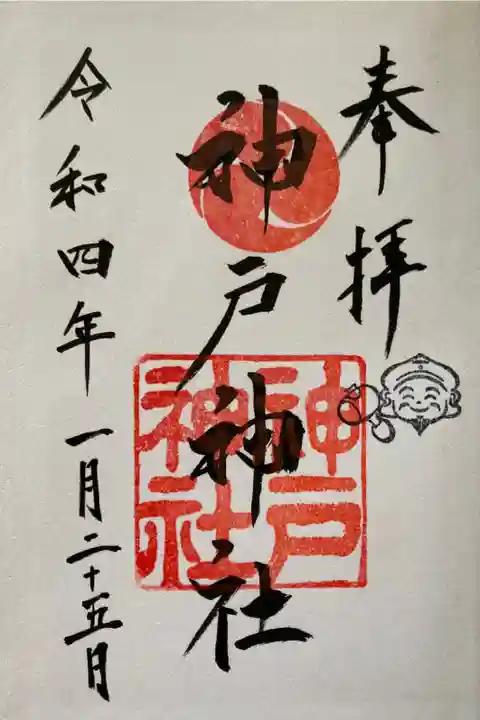 奉拝
神戸神社
神戸
神社
令和四年一月二十五月